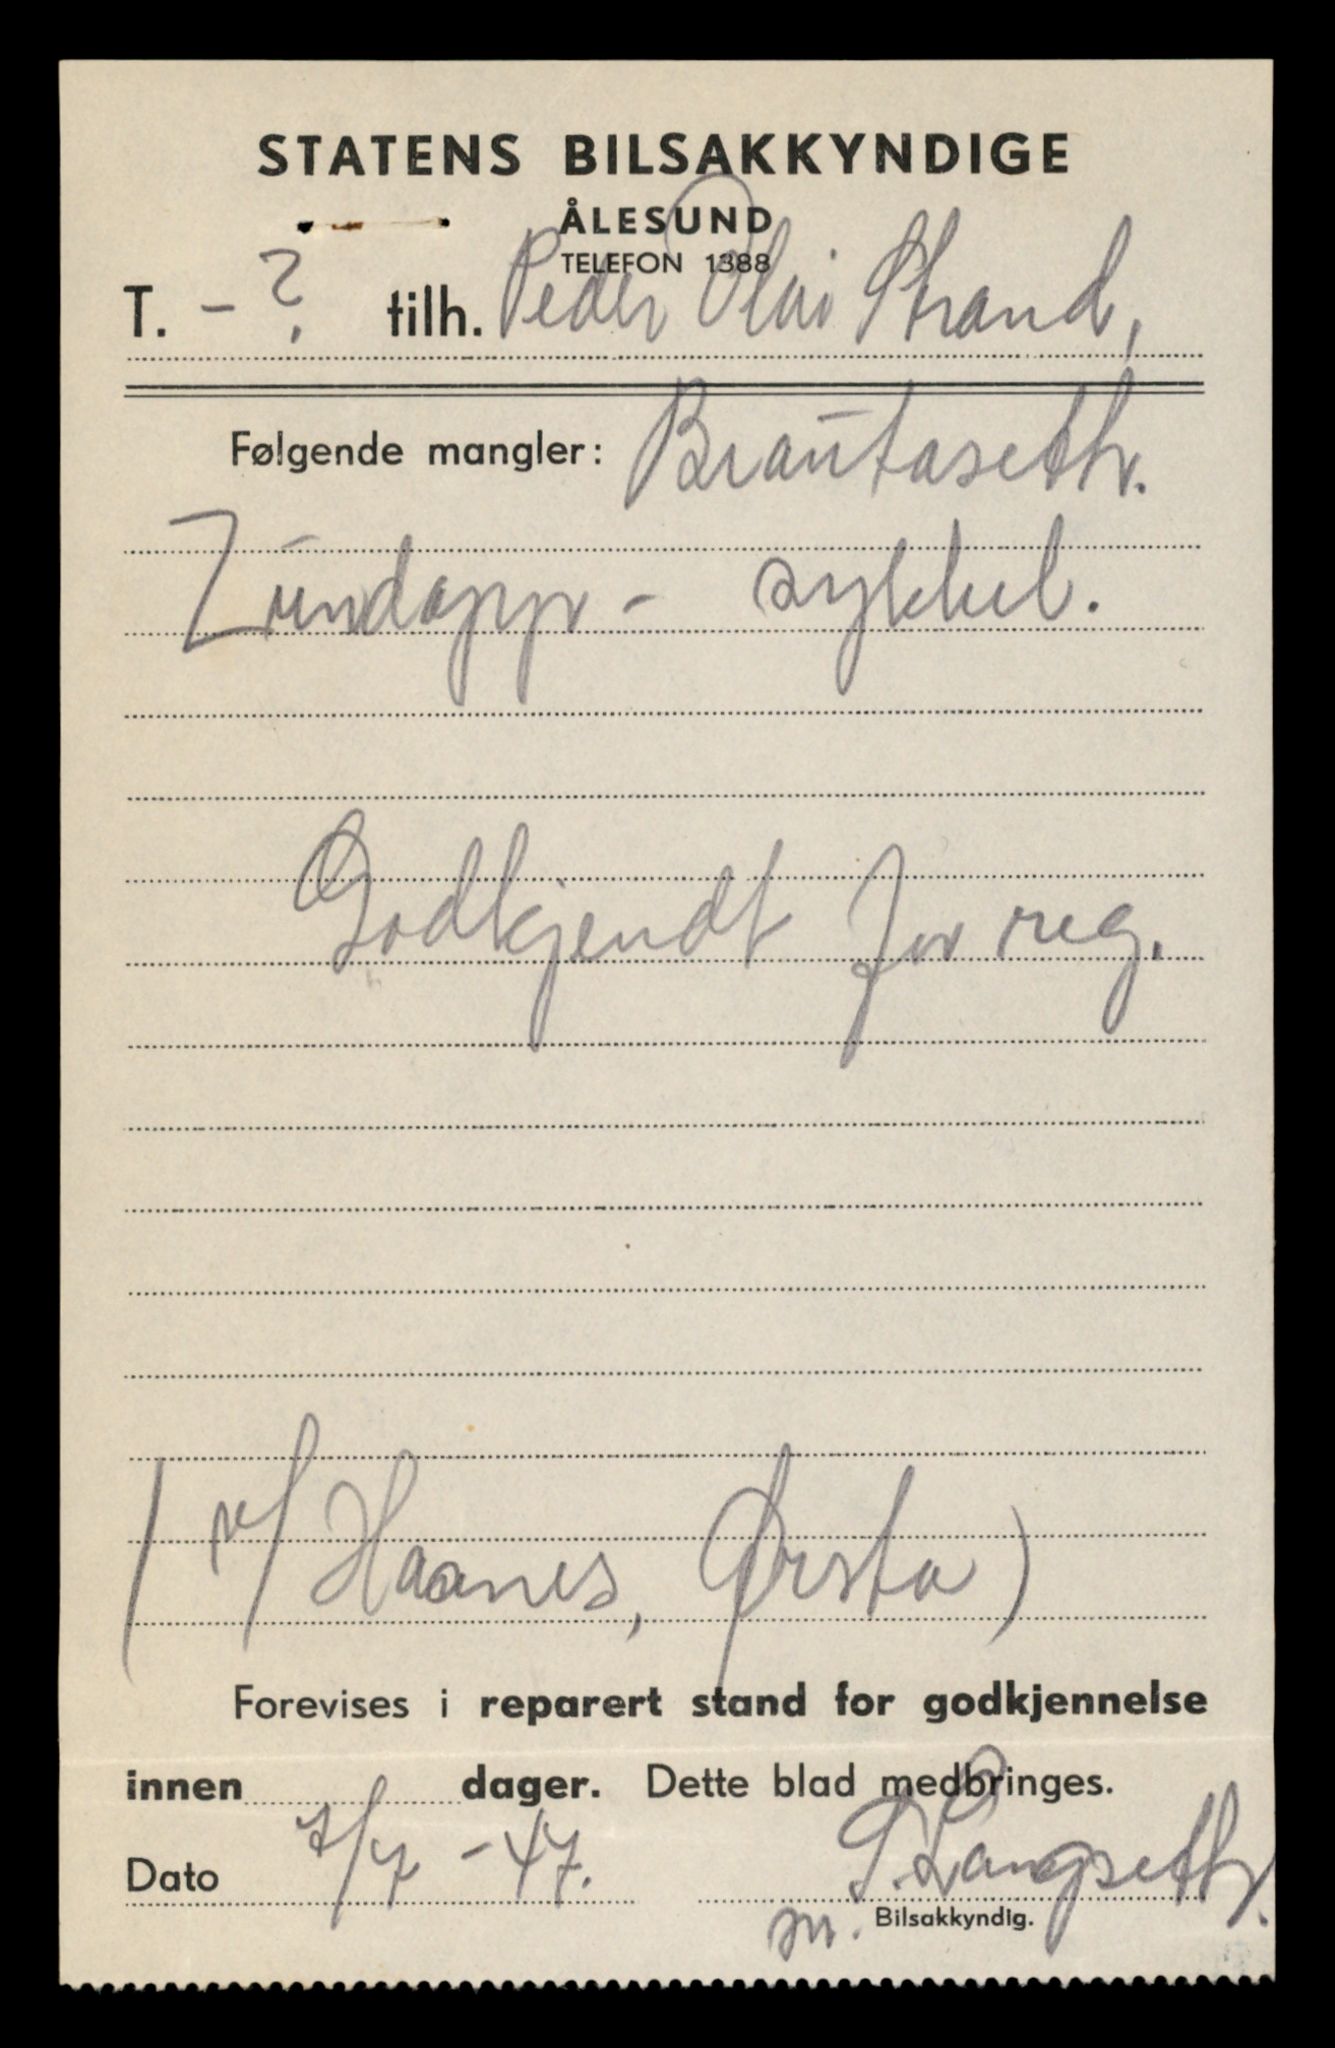 STATENS BILSAKKYNDIGE
ÅLESUND
TELEFON 1388
T. - ? tilh. Peder Olai Strand,
Følgende mangler: Brautaseth.
Zündapp - sykkel.
Godkjendt for reg.
( v/ Haanes, Ørsta )
Forevises i reparert stand for godkjennelse
innen dager. Dette blad medbringes.
Dato 7/7 - 47. S. Langseth.
Bilsakkyndig.